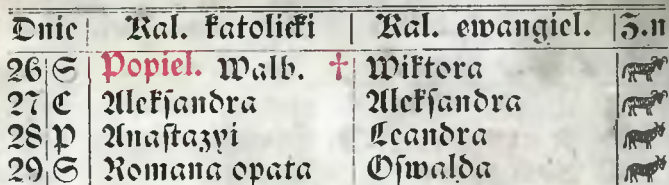 Dnie Kal. katolicki Kal. ewangiel. Z.n
26 S Popiel. Walb. † Wiktora
27 C Aleksandra Aleksandra
28 P Anastazyi Leandra
29 S Romana opata Oswalda